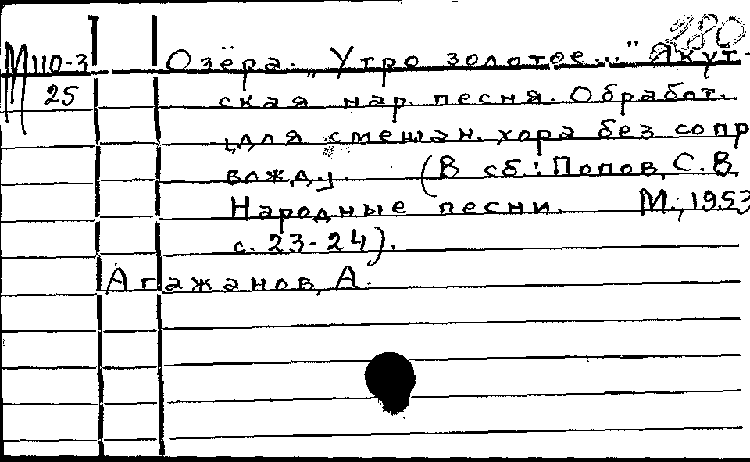 280
М110-3 Озёра. "Утро золотое..." Якут-
25 ская нар. песня. Обработ.
для смешан. хора без сопр
вожд. (В сб.: Попов, С.В.
Народные песни. М., 1953
с. 23-24).
Агажанов, А.